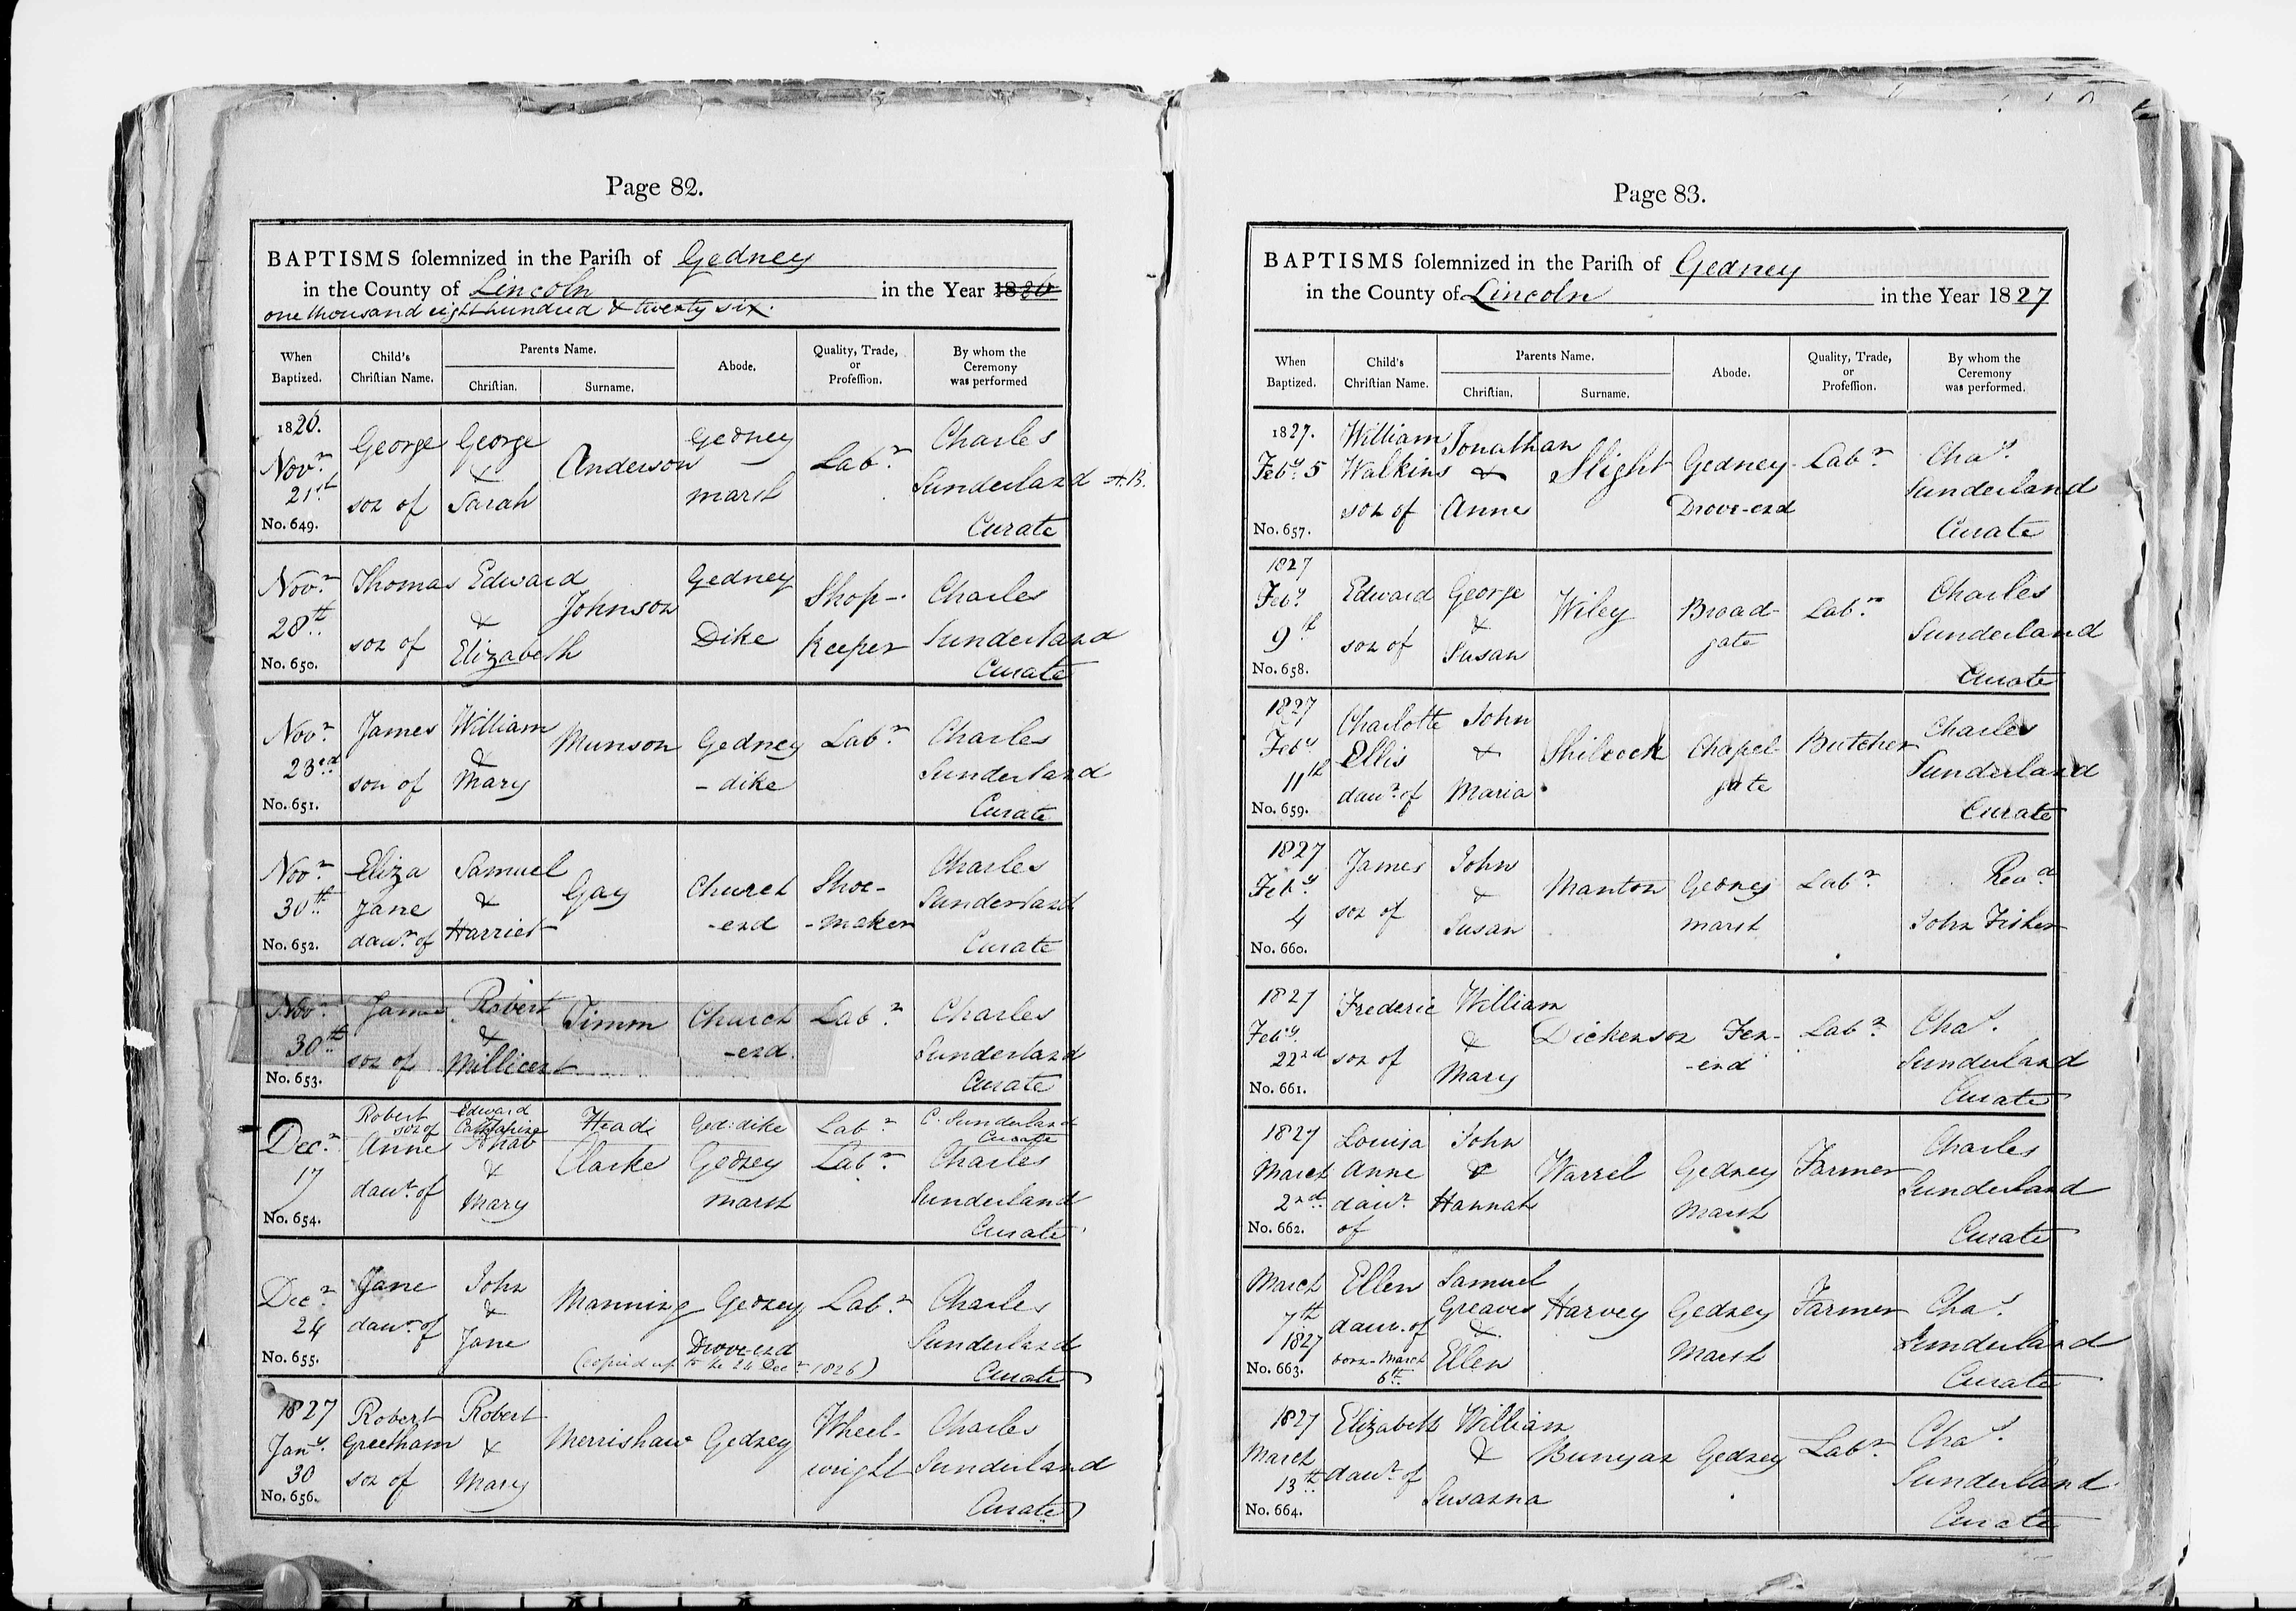 Page 82.
BAPTISMS solemnized in the Parish of Gedney
in the County of Lincoln in the Year 1826
one thousand eight hundred & twenty six.
When Baptized. Child's Christian Name. Parents Name. Christian. Surname. Abode. Quality, Trade, or Profession. By whom the Ceremony was performed
1826. Novr. 21st No. 649. George son of George & Sarah Anderson Gedney marsh Labr. Charles Sunderland A.B. Curate
Novr. 28th No. 650. Thomas son of Edward & Elizabeth Johnson Gedney Dike Shop-keeper Charles Sunderland Curate
Novr. 23rd No. 651. James son of William & Mary Munson Gedney -dike Labr. Charles Sunderland Curate
Novr. 30th No. 652. Eliza Jane dawr. of Samuel & Harriet Gay Church -end Shoe- -maker Charles Sunderland Curate
Novr. 30th No. 653. James son of Robert & Millicent Timm Church -end Labr. Charles Sunderland Curate
Robert son of Edward Catherine Head Ged: dike Labr. C. Sunderland Curate
Decr. 17 No. 654. Anne dawr. of & Mary Clarke Gedney marsh Labr. Charles Sunderland Curate
Decr. 24 No. 655. Jane dawr. of John & Jane Manning Gedney Drove-end Labr. Charles Sunderland Curate
(copied up to the 24 Decr. 1826)
1827 Jany. 30 No. 656. Robert Greetham son of Robert & Mary Merrishaw Gedney Wheel-wright Charles Sunderland Curate
Page 83.
BAPTISMS solemnized in the Parish of Gedney
in the County of Lincoln in the Year 1827
When Baptized. Child's Christian Name. Parents Name. Christian. Surname. Abode. Quality, Trade, or Profession. By whom the Ceremony was performed.
1827. Feby. 5 No. 657. William Walkins son of Jonathan & Anne Slight Gedney Drove-end Labr. Chas. Sunderland Curate
1827 Feby. 9th No. 658. Edward son of George & Susan Wiley Broad-gate Labr. Charles Sunderland Curate
1827 Feby. 11th No. 659. Charlotte Ellis dawr. of John & Maria Shilcock Chapel gate Butcher Charles Sunderland Curate
1827 Feby. 4 No. 660. James son of John & Susan Manton Gedney marsh Labr. Revd. John Fisher
1827 Feby. 22nd No. 661. Frederic son of William & Mary Dickenson Fen- -end Labr. Chas. Sunderland Curate
1827 March 2nd No. 662. Louisa Anne dawr. of John & Hannah Warrel Gedney Marsh Farmer Charles Sunderland Curate
March 7th 1827 No. 663. Ellen dawr. of born March 6th. Samuel Greaves & Ellen Harvey Gedney Marsh Farmer Chas. Sunderland Curate
1827 March 13th No. 664. Elizabeth dawr. of William & Susanna Bunyan Gedney Labr. Chas. Sunderland Curate